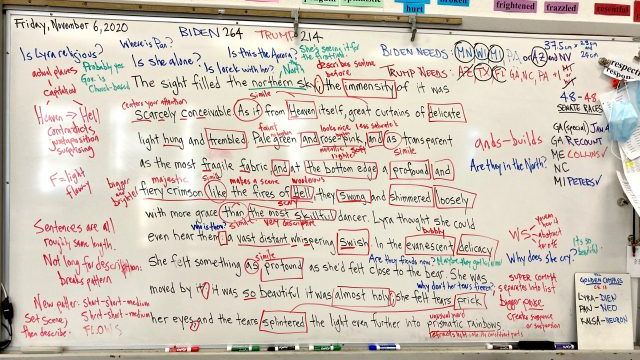 hurt
broken
frightened
frazzled
resentful
Friday, November 6, 2020
BIDEN 264 TRUMP 214
Is Lyra religious?
Where is Pan?
Is she alone?
Is this the Aurora?
Is Iorek with her?
She's seeing it for the first time
describes scene before
BIDEN NEEDS: MN WI MI PA or AZ and NV
TRUMP NEEDS: AZ TX FL GA, NC, PA +1
actual places capitalized
Probably yes
Church-based
The sight filled the northern sky; the immensity of it was
Centers your attention
simile
scarcely conceivable. As if from Heaven itself, great curtains of delicate
faint
looks nice
less saturated
light hung and trembled. Pale green and rose-pink, and as transparent
majestic
simile
as the most fragile fabric, and at the bottom edge a profound and
bigger brighter
makes a scene
fiery crimson like the fires of Hell, they swung and shimmered loosely
with more grace than the most skillful dancer. Lyra thought she could
who is them?
simile
very descriptive
bubbly
even hear them: a vast distant whispering swish. In the evanescent delicacy
simile
Are they friends now?
She felt something as profound as she'd felt close to the bear. She was
Why don't her tears freeze?
moved by it; it was so beautiful it was almost holy; she felt tears prick
unusual word
her eyes, and the tears splintered the light even further into prismatic rainbows.
Heaven → Hell
Contradicts
juxtaposition
surprising
F-light
flowy
Sentences are all
roughly same length.
Not long for description:
breaks pattern
New pattern: short-short-medium
Set scene,
short-short-medium
then describe.
FLOWS
48 - 48
SENATE RACES
GA (special) Jan 4
GA RECOUNT
ME COLLINS ✓
NC
MI PETERS ✓
ands - builds
Are they in the North?
It's so beautiful!
Why does she cry?
super comma
separates into list
bigger pause
Creates suspense
or separation
GOLDEN COMPASS
LYRA - DIEN
PAN - NEO
KAISA - NEURON